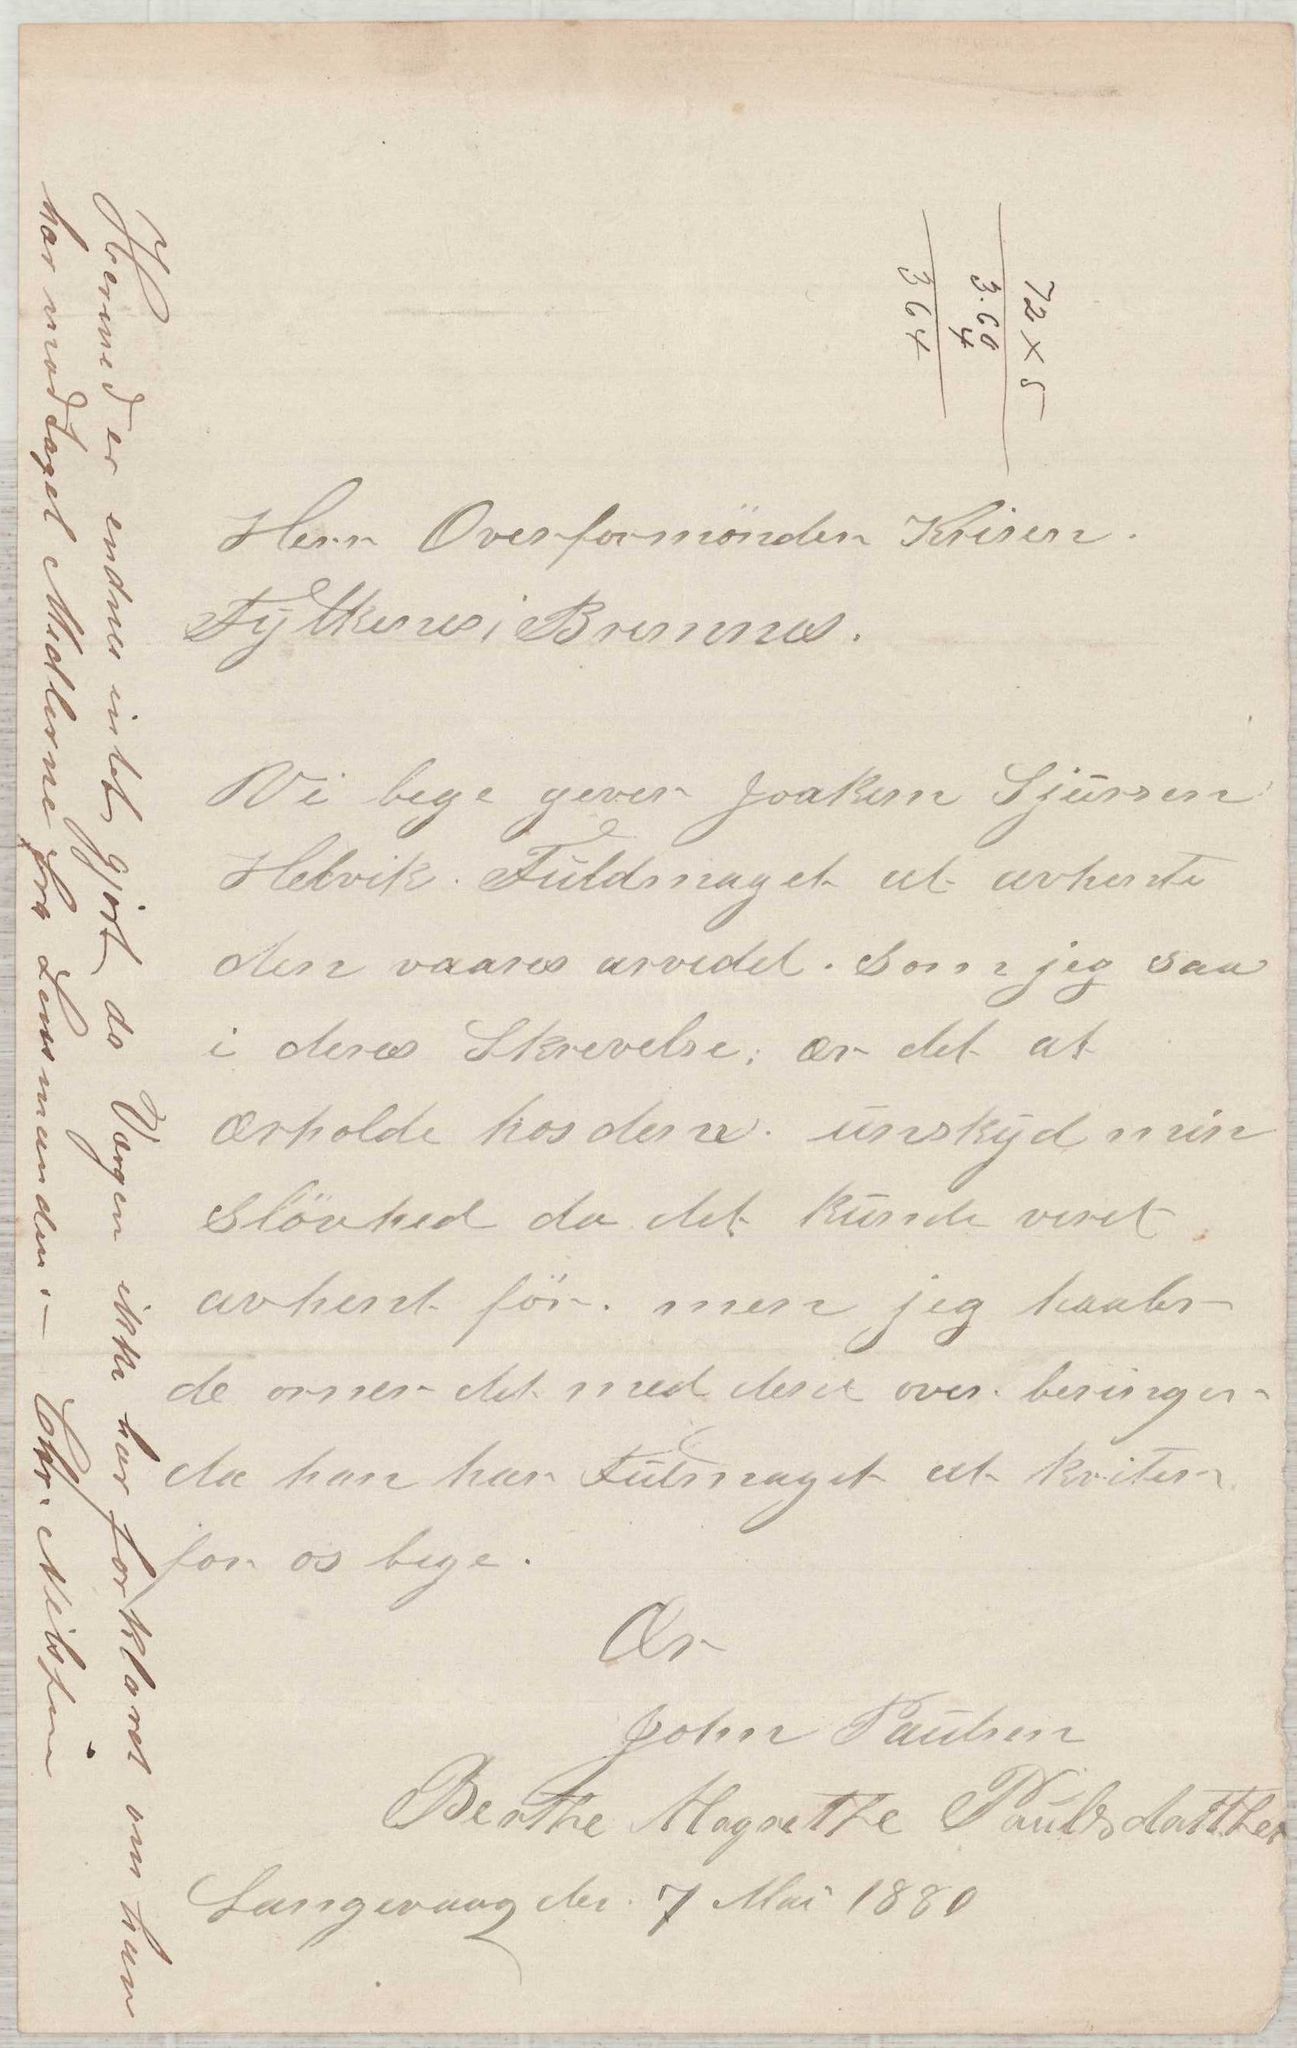 72 × 5
3.60
4
364
Herr Overformönder Krisen.
Fylkenes i Bremnes.
Vi bege gever Joakim Sjursen
Helvik. Fuldmaget at avhente
den vaares arvedel. som jeg saa
i deres Skrevelse; ær det at
ærholde hos dem. unskyd min
slövhed da det kunde veret
avhent för. men jeg haaber
de orner det med den over beringer
da han har Fulmaget at kviter
for os bege.
Ær
John Paulsen
Berthe Magrethe Paulsdatther
Langevaag den 7 Mai 1880
Hermed er endnu intet gjort, da Værgen ikke har forklaret om han
har modtaget Midlerne fra Lensmanden. — Chr. Nilsen